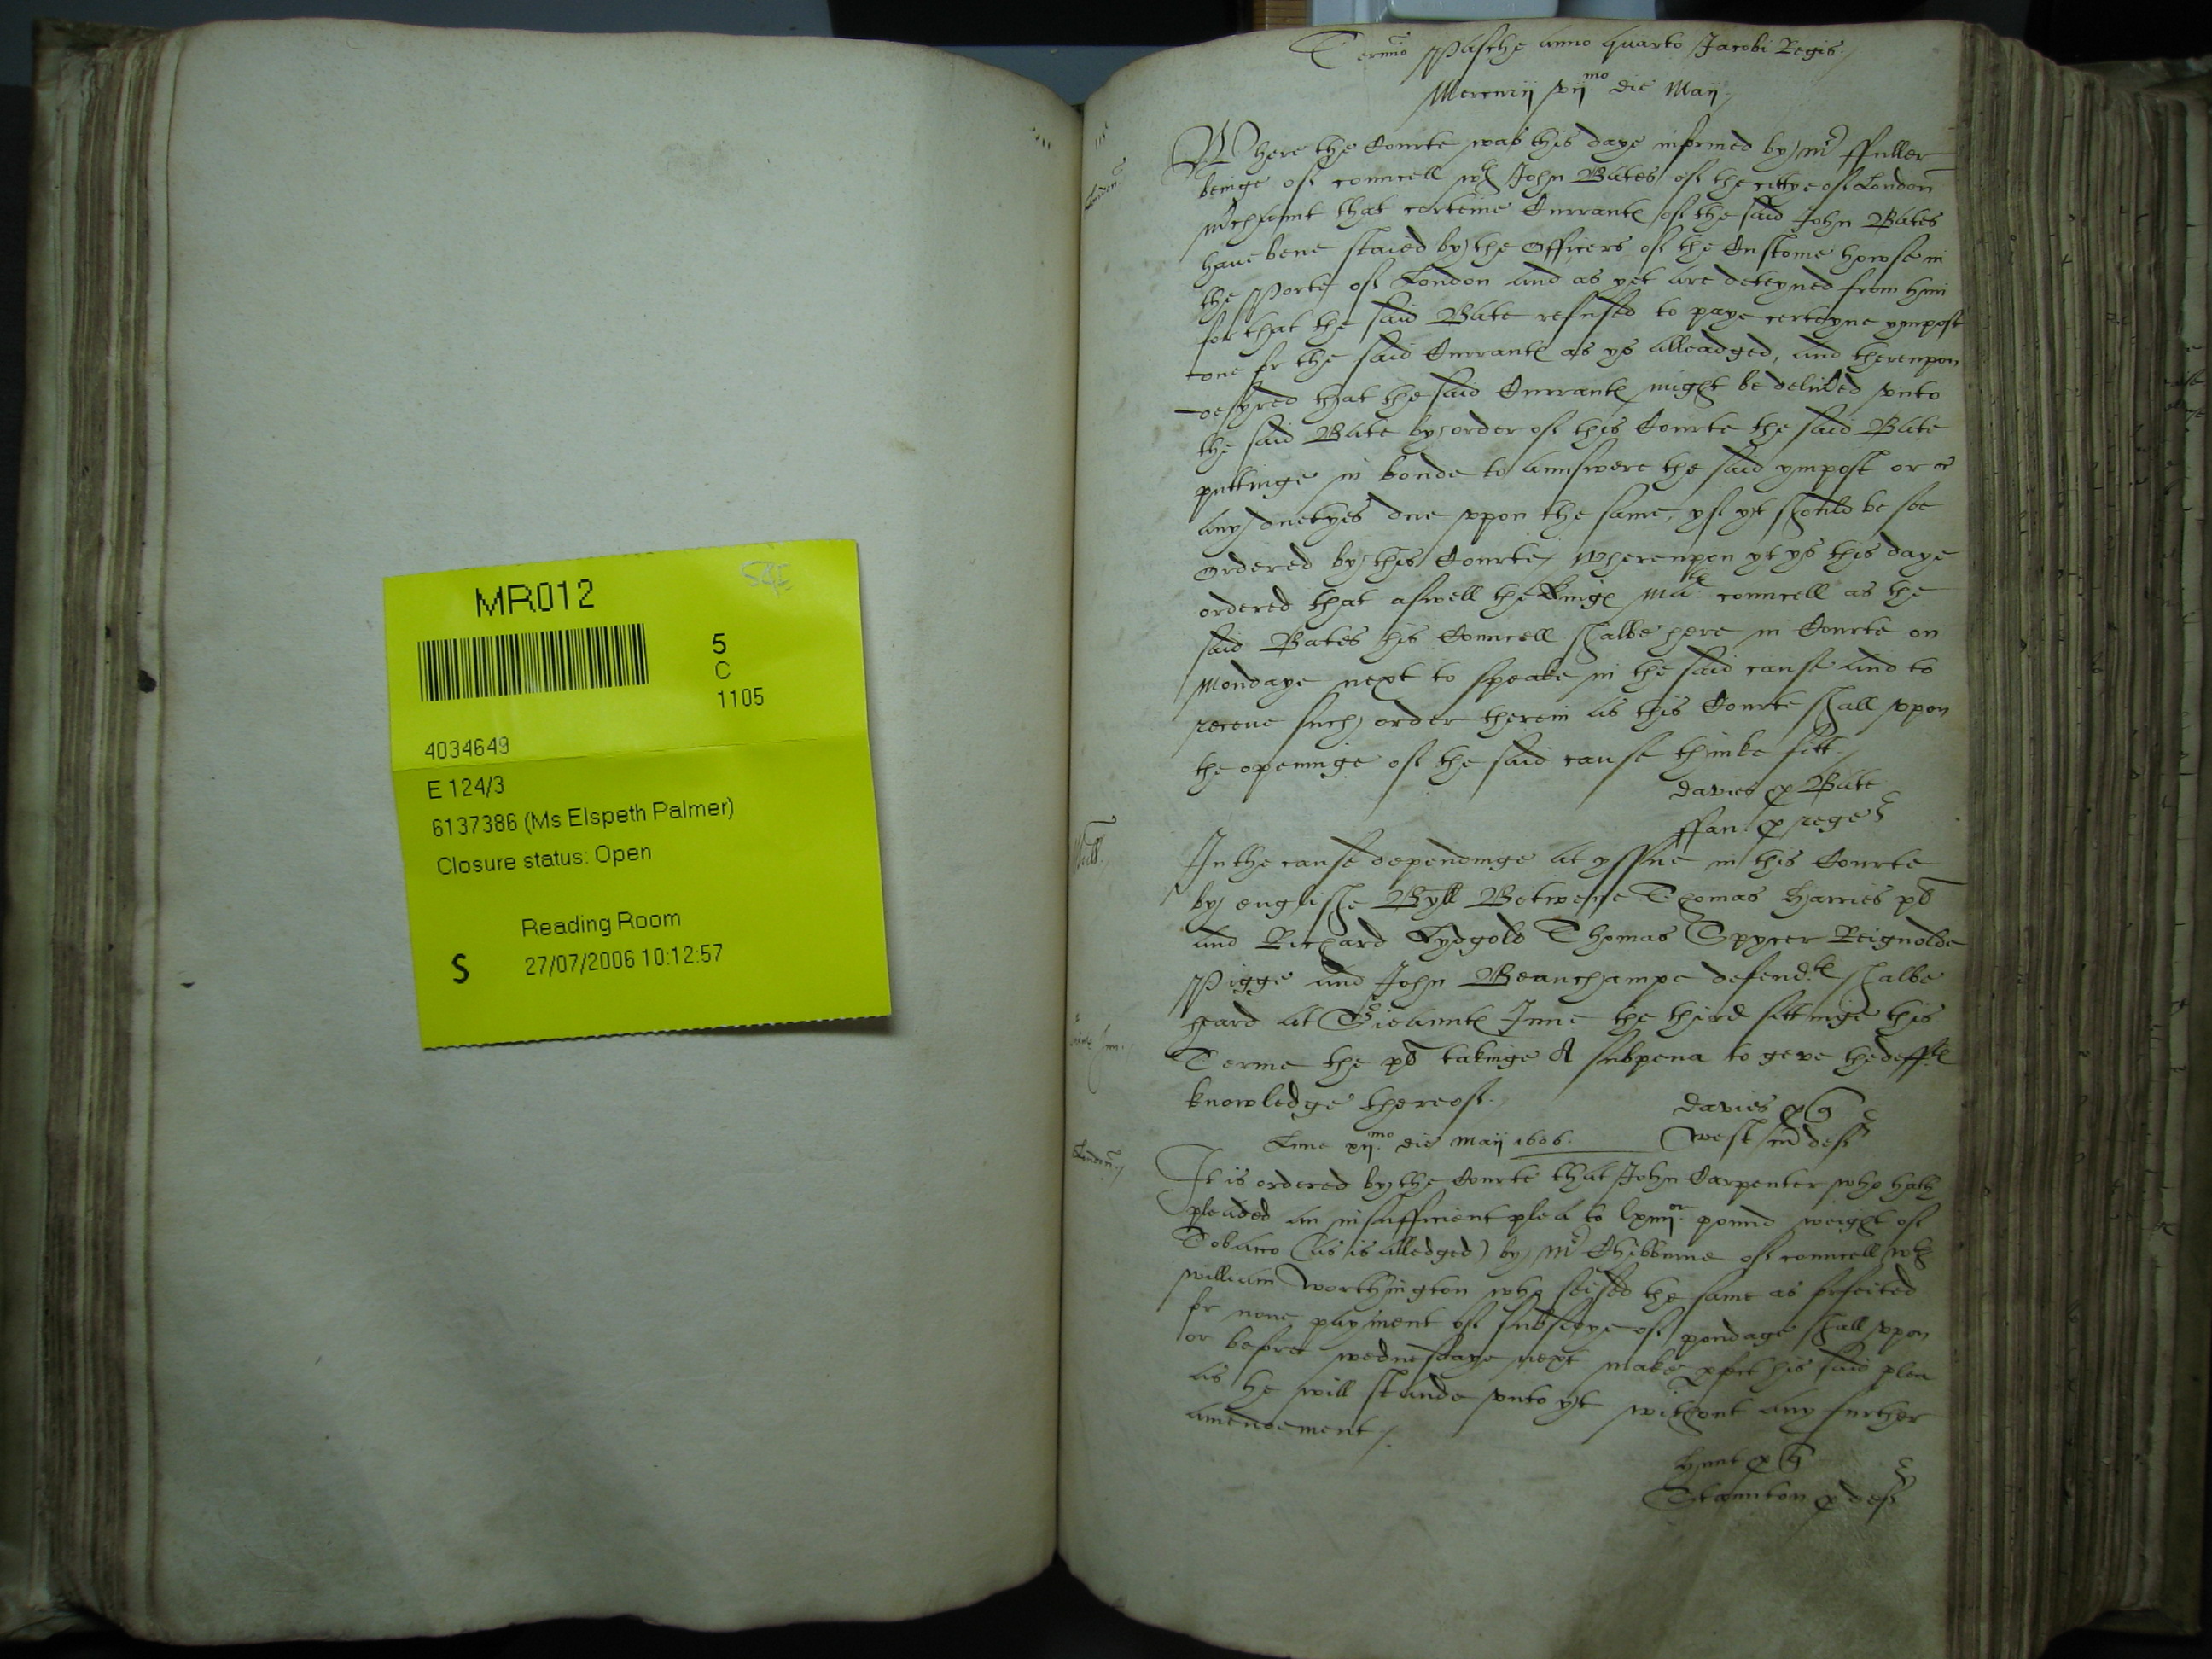 MR012
5
C
1105
4034649
E 124/3
6137386 (Ms Elspeth Palmer)
Closure status: Open
Reading Room
S
27/07/2006 10:12:57
Termio Pasche anno quarto Jacobi Regis
Mercurij vijmo die Maij
London
Where the Courte was this daye informed by Mr ffuller
beinge of councell wth John Bates of the cittye of London
mrchaunt that certeine Currants of the said John Bates
have bene staied by the Officers of the Custome howse in
the Porte of London and as yet are deteyned from him
for that the said Bate refused to paye certeyne ympost
due for the said Currants as ys alleadged, and thereupon
desyred that the said Currants might be delivred unto
the said Bate by order of this Courte the said Bate
puttinge in bonde to aunswere the said ympost or
any duetyes due uppon the same, yf yt should be soe
ordered by this Courte, Whereupon yt ys this daye
ordered that aswell the Kings Mats councell as the
said Bates his Councell shalbe here in Courte on
Mondaye next to speake in the said cause and to
receve such order therein as this Courte shall uppon
the openinge of the said cause thinke fitt
Davies p Bate
ffan. p rege
In the cause dependinge at yssue in this Courte
by englishe Byll Betwene Thomas Harries pl
and Richard Lydgold Thomas Spycer Reignolde
Pigge and John Beauchampe defendts shalbe
heard at Srieaunts Inne the third sittinge this
Terme the pl takinge A subpena to geve the deffts
knowledge thereof.
Davies p q
West p def
Lune xijmo die Maij 1606.
London
It is ordered by the Courte that John Carpenter who hath
pleaded an insufficient plea to lxiiijor pound weight of
Tobacco (as is alledged) by Mr Chibburne of councell wth
william Worthington who seised the same as forfeited
for none payment of subsedye of pondage shall uppon
or before wednesdaye next make pfect his said plea
as he will stande unto yt without any further
amendement
Hunt p q
Staunton p def